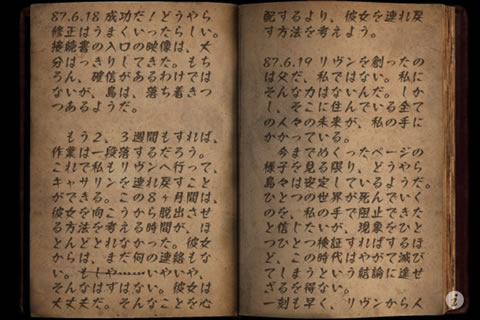 87.6.18 成功だ！どうやら
修正はうまくいったらしい。
接続書の入口の映像は、大
分はっきりしてきた。もち
ろん、確信があるわけでは
ないが、島は、落ち着きつ
つあるようだ。
もう2、3週間もすれば、
作業は一段落するだろう。
これで私もリヴンへ行って、
キャサリンを連れ戻すこと
ができる。この8ヶ月間は、
彼女を向こうから脱出させ
る方法を考える時間が、ほ
とんどとれなかった。彼女
からは、まだ何の連絡もな
い。もしや……いやいや、
そんなはずはない。彼女は
大丈夫だ。そんなことを心
配するより、彼女を連れ戻
す方法を考えよう。
87.6.19 リヴンを創ったの
は父だ、私ではない。私に
そんな力はないんだ。しか
し、そこに住んでいる全て
の人々の未来が、私の手に
かかっている。
今までめくったページの
様子を見る限り、どうやら
島々は安定しているようだ。
ひとつの世界が死んでいく
のを、私の手で阻止できた
と信じたいが、現象をひと
つひとつ検証すればするほ
ど、この時代はやがて滅び
てしまうという結論に達せ
ざるを得ない。
一刻も早く、リヴンから人
i